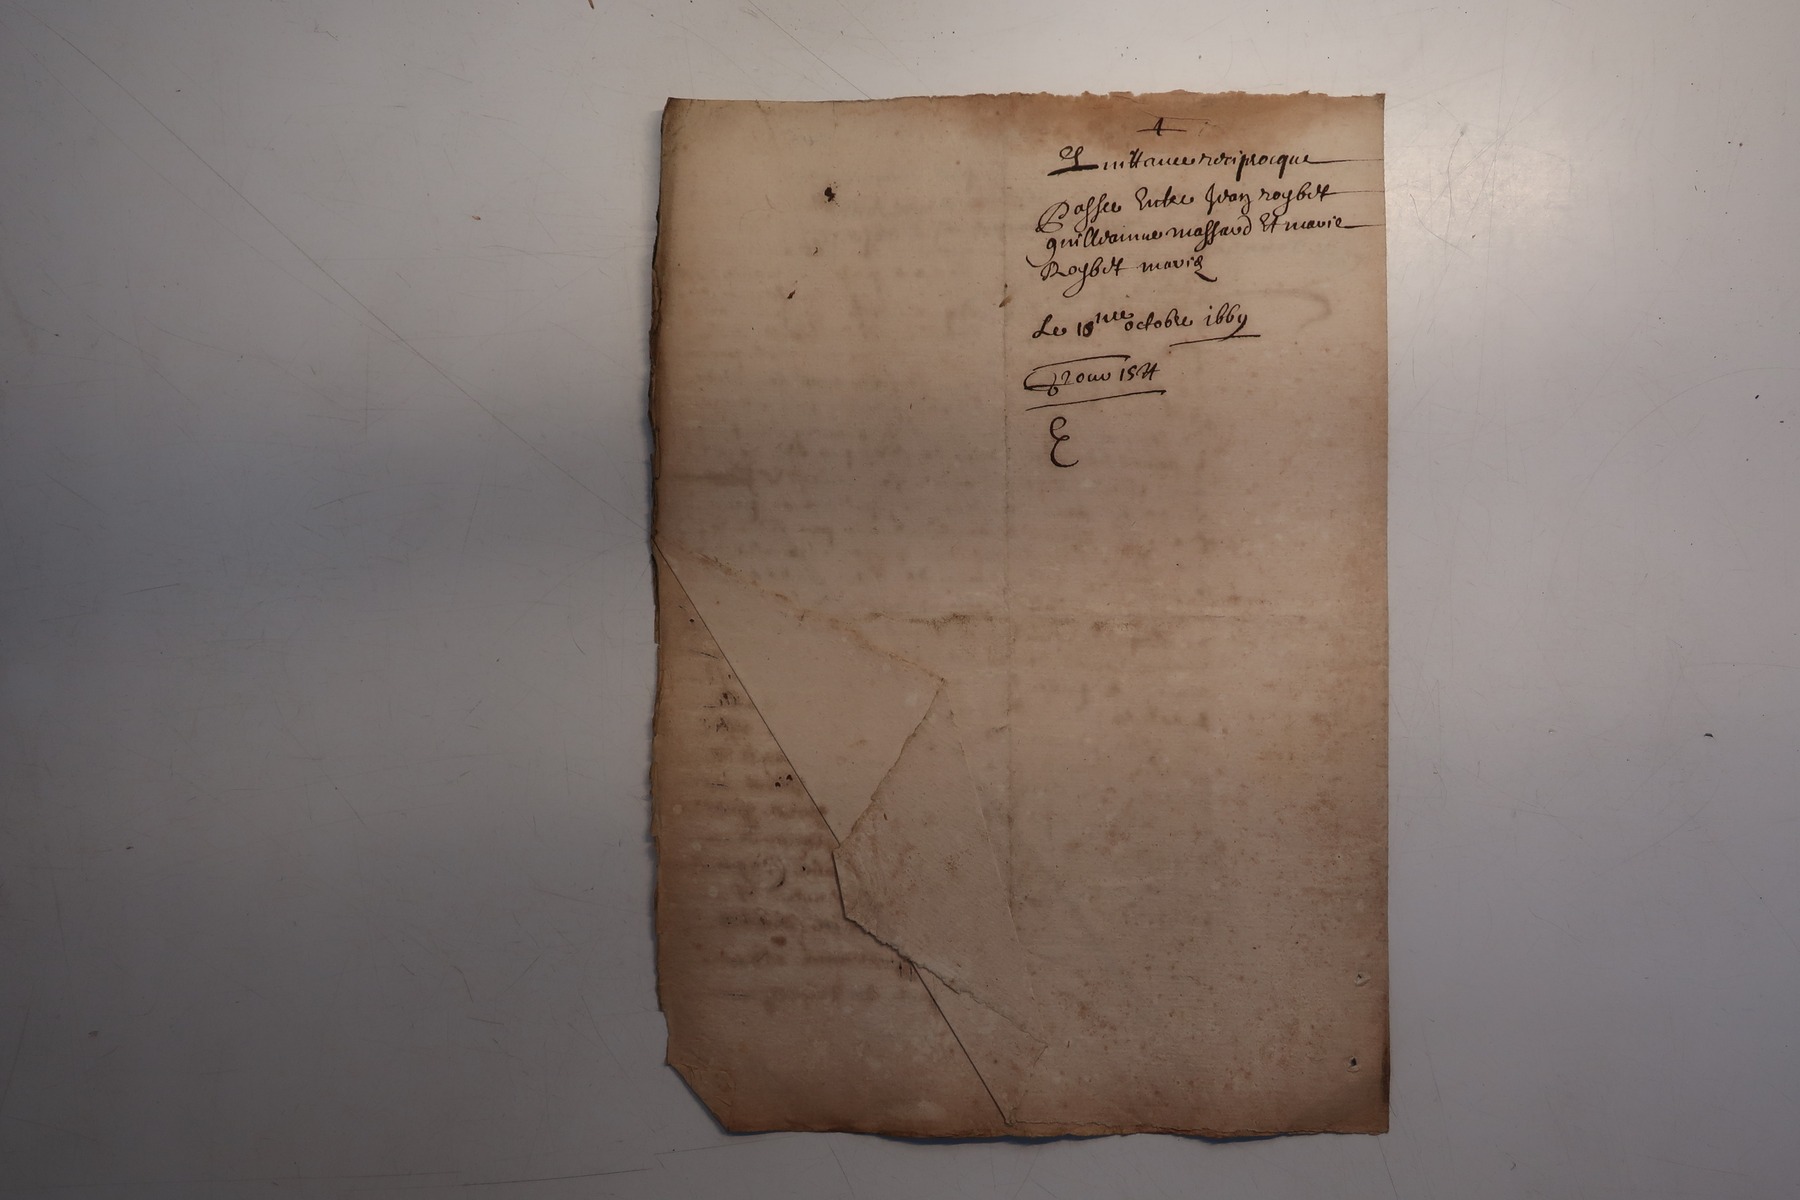 4
Quittance reciprocque
Passee Entre Jean roybet
guilleaume massard Et marie
Roybet mariés
Le 18me octobre 1669
E